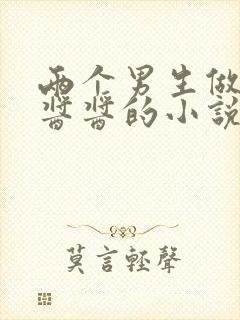 两个男生做
酱酱的小説
莫言輕聲